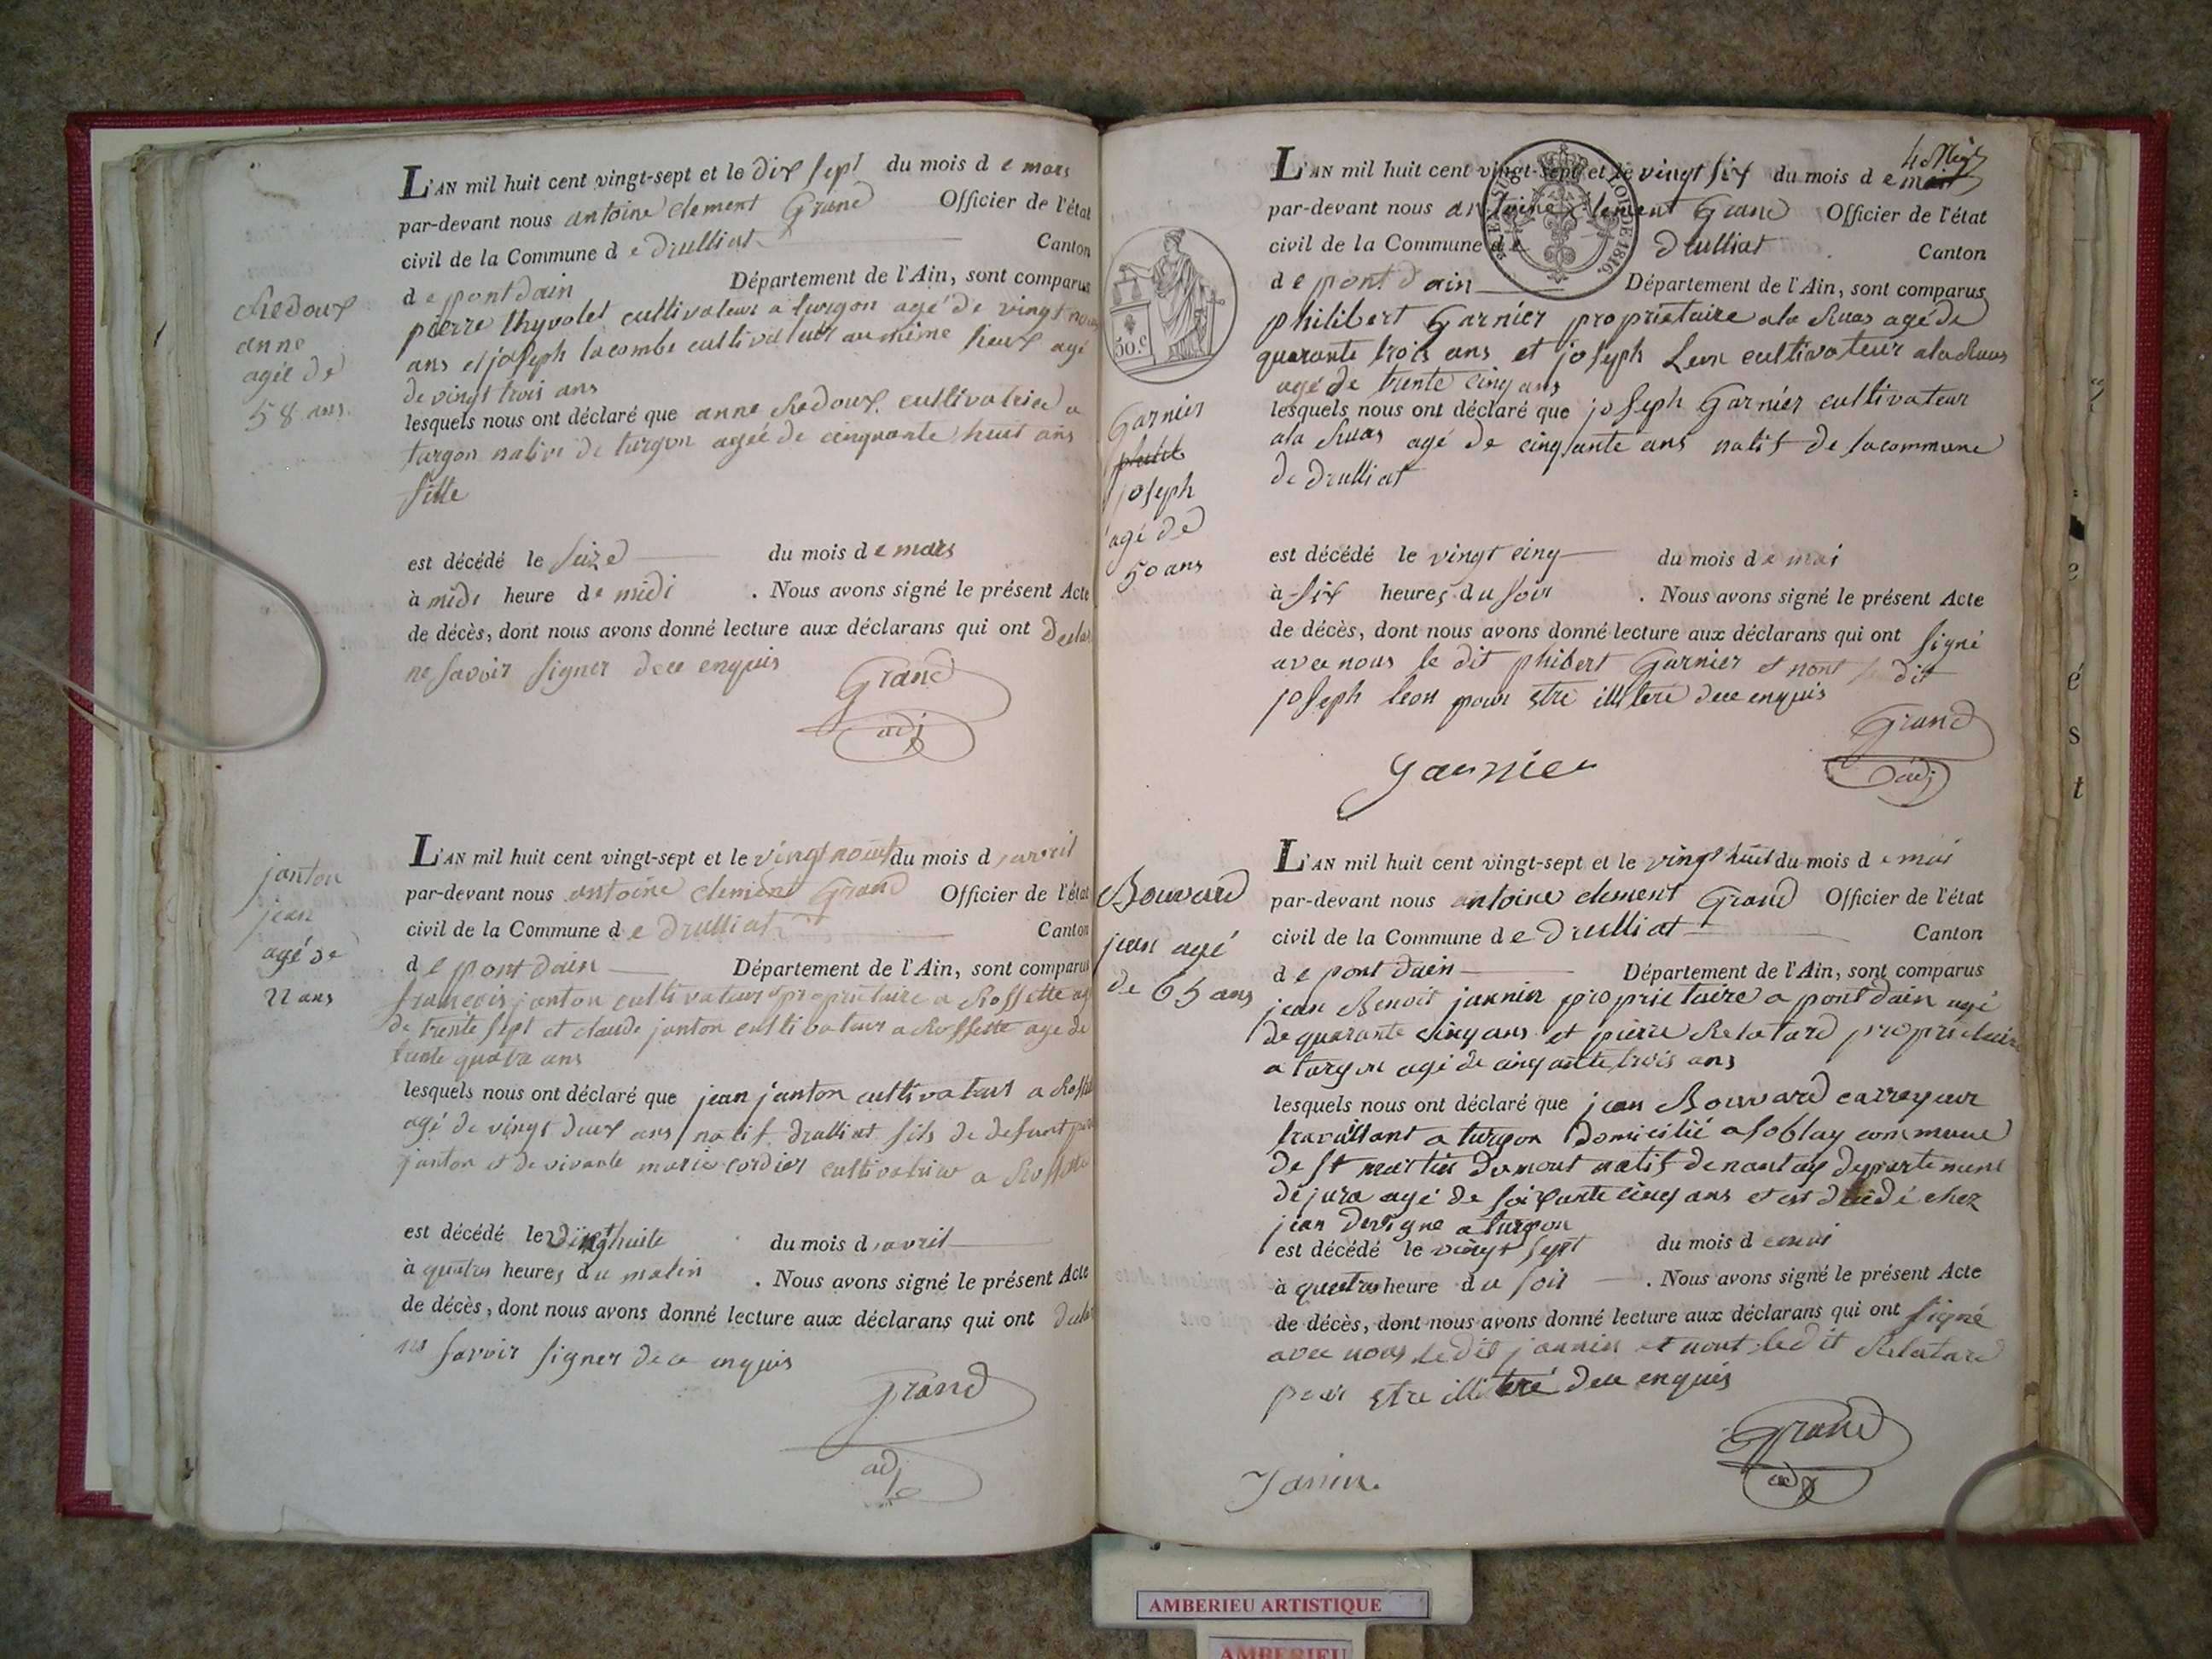 L'AN mil huit cent vingt-sept et le dix sept du mois de mars
par-devant nous antoine clement Grand Officier de l'état
civil de la Commune de Drulliat Canton
de pont dain Département de l'Ain, sont comparus
pierre thyvolet cultivateur a turgon agé de vingt
ans et joseph lacombe cultivateur au même lieux agé
de vingt trois ans
lesquels nous ont déclaré que anne Redoux cultivatrice a
turgon native de turgon agée de cinquante huit ans
fille
est décédé le seize du mois de mars
à midi heure de midi . Nous avons signé le présent Acte
de décès, dont nous avons donné lecture aux déclarans qui ont
ne savoir signer de ce enquis
Grand
adj
Redoux
anne
agée de
58 ans.
L'AN mil huit cent vingt-sept et le vingt neuf du mois d avril
par-devant nous antoine clement Grand Officier de l'état
civil de la Commune de Drulliat Canton
de pont dain Département de l'Ain, sont comparus
francois janton cultivateur propriétaire a Rossette
de trente sept et claude janton cultivateur a Rossette age de
trente quatre ans
lesquels nous ont déclaré que jean janton cultivateur a
agé de vingt deux ans natif drulliat fils de defunt
janton et de vivante marie cordier cultivatrice a Rossette
est décédé le vingt huite du mois d avril
à quatre heures du matin . Nous avons signé le présent Acte
de décès, dont nous avons donné lecture aux déclarans qui ont
ne savoir signer de ce enquis
Grand
adj
janton
jean
agé de
22 ans
L'AN mil huit cent vingt-sept et le vingt six du mois de mai
par-devant nous antoine clement Grand Officier de l'état
civil de la Commune de Drulliat Canton
de pont dain Département de l'Ain, sont comparus
philibert Garnier propriétaire a la Ruas agé de
quarante trois ans et joseph Leon cultivateur a la Ruas
agé de trente cinq ans
lesquels nous ont déclaré que joseph Garnier cultivateur
a la Ruas agé de cinqsante ans natif de la commune
de drulliat
est décédé le vingt cinq du mois de mai
à six heures du soir . Nous avons signé le présent Acte
de décès, dont nous avons donné lecture aux déclarans qui ont signé
avec nous le dit phibert Garnier et nont le dit
joseph leon pour etre illitere de ce enquis
Grand
adj
garnier
LOI DE 1816.
50.c
Garnier
joseph
agé de
50 ans
L'AN mil huit cent vingt-sept et le vingt huit du mois de mai
par-devant nous antoine clement Grand Officier de l'état
civil de la Commune de Drulliat Canton
de pont dain Département de l'Ain, sont comparus
jean Benoit jannin proprietaire a pont dain agé
de quarante cinq ans et pierre Relatard propriétaire
a turgon agé de cinquante trois ans
lesquels nous ont déclaré que jean Bouvard carreyeur
travaillant a turgon domicilié a soblay commune
de st martin du mont natif de nantay departement
de jura agé de soixante cinq ans et est décédé chez
jean dervigne a turgon
est décédé le vingt sept du mois de mai
à quatre heure du soir . Nous avons signé le présent Acte
de décès, dont nous avons donné lecture aux déclarans qui ont signé
avec nous ledit jannin et nont ledit Relatard
pour etre illiteré de ce enquis
Grand
adj
Janin
Bouvard
jean agé
de 65 ans
AMBERIEU ARTISTIQUE
AMBERIEU